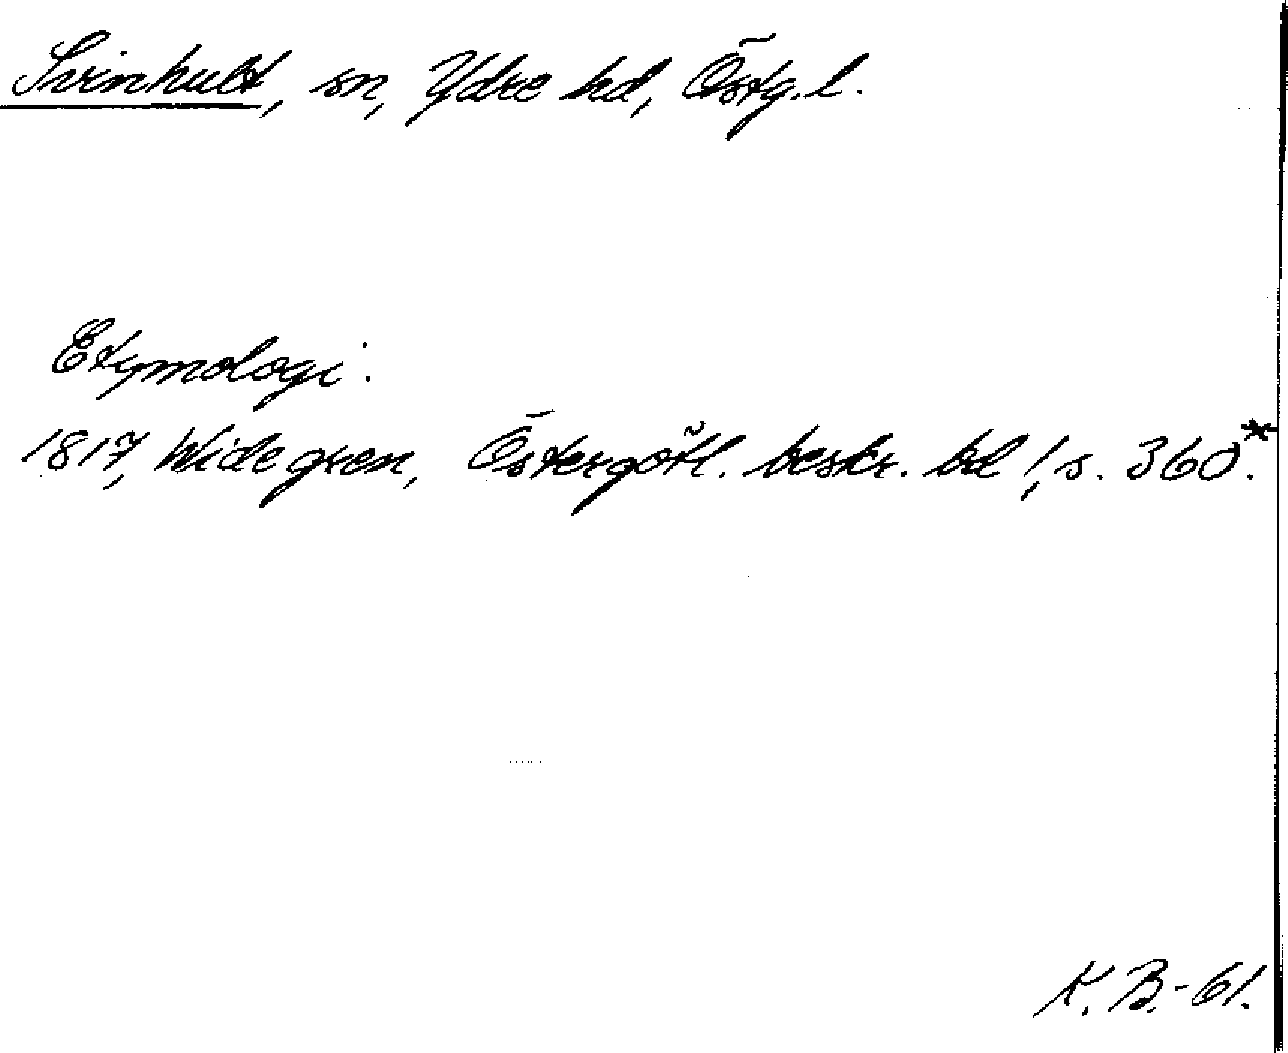 Svinhult, sn, Ydre hd, Östg. l.
Etymologi:
1817, Widegren, Östergötl. beskr. bd 1, s. 360.*
K. B.-61.